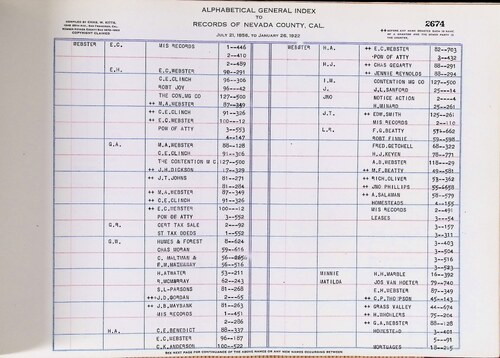 ALPHABETICAL GENERAL INDEX
TO
RECORDS OF NEVADA COUNTY, CAL.
JULY 21, 1856, TO JANUARY 26, 1922
COPYRIGHT CLAIMED
2674
WEBSTER E.C. MIS RECORDS 1--446
2--410
2--489
E.H. E.C.WEBSTER 90--291
C.E.CLINCH 96--306
ROBT JOY 96--42
THE CON.MG CO 127--500
++ M.A.WEBSTER 87--349
++ C.E.CLINCH 91--326
++ E.C.WEBSTER 100--12
POW OF ATTY 3--553
4--147
G.A. M.A.WEBSTER 88--128
C.E.CLINCH 91--306
THE CONTENTION M C 127-500
++ J.H.DICKSON 17--328
++ J.T.JOHNS 81--271
81--284
++ M.A.WEBSTER 87--349
++ C.E.CLINCH 91--326
++ E.C.WEBSTER 100--12
POW OF ATTY 3--552
G.R. CERT TAX SALE 2--92
ST TAX DEEDS 1--552
G.W. HUMES & FOREST 8--624
CHAS MORAN 59--616
C. MALTMAN &
59--516
H.ATWATER 53--211
R.MCMURRAY 62--243
S.L-PARSONS 81--268
++J.D.GORDAN 2--65
++J.B.MAYBANK 81--263
MIS RECORDS 1--451
2--286
H.A. C.E.BENEDICT 88--337
E.C.WEBSTER 96--187
C.K.ANDERSON 100--522
WEBSTER H.A. ++ E.C.WEBSTER 82--703
POW OF ATTY 3--432
H.J. ++ CHAS GEGARTY 88--291
++ JENNIE REYNOLDS 88--294
I.W. CONTENTION MG CO 127-500
J. J.L.SANFORD 25--14
JNO NOTICE ACTION 2---4
H.MINARD 25--261
J.T. ++ EDW.SMITH 125--261
MIS RECORDS 2--110
L.R. F.G.BEATTY
ROBT FINNIE 59--598
FRED GETCHELL 68--322
H.J.KEYEN 78--771
A.B.WEBSTER 118--29
++ M.F.BEATTY 49--581
++ RICH.OLIVER 53--362
++ JNO PHILLIPS 55-658
++ A.SALKMAN 58--579
HOMESTEADS 4--155
MIS RECORDS 2--491
LEASES 3--54
3--157
3--311
3--403
3--504
3--516
3--523
MINNIE H.H.MARBLE 16--392
MATILDA JOS VAN HOETER 79--740
E.H.WEBSTER 87--349
++ C.P.THOMPSON 45--143
++ GRASS VALLEY 44--674
++ H.SHOHLERS 75--204
++ G.A.WEBSTER 88--128
HOMESTEAD 3---91
5---91
MORTGAGES 18--215
SEE NEXT PAGE FOR CONTINUANCE OF THE ABOVE NAMES OR ANY NEW NAMES OCCURRING BETWEEN